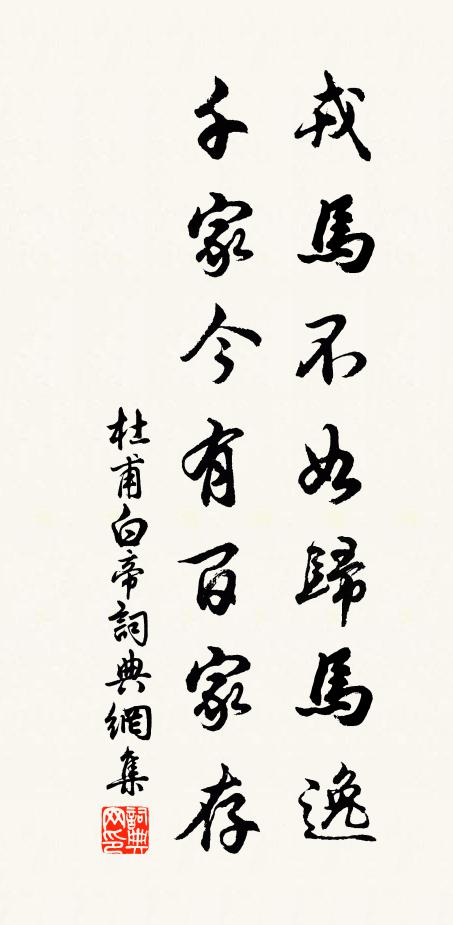 戎馬不如歸馬逸
千家今有百家存
杜甫白帝詞典網集
詞典网印